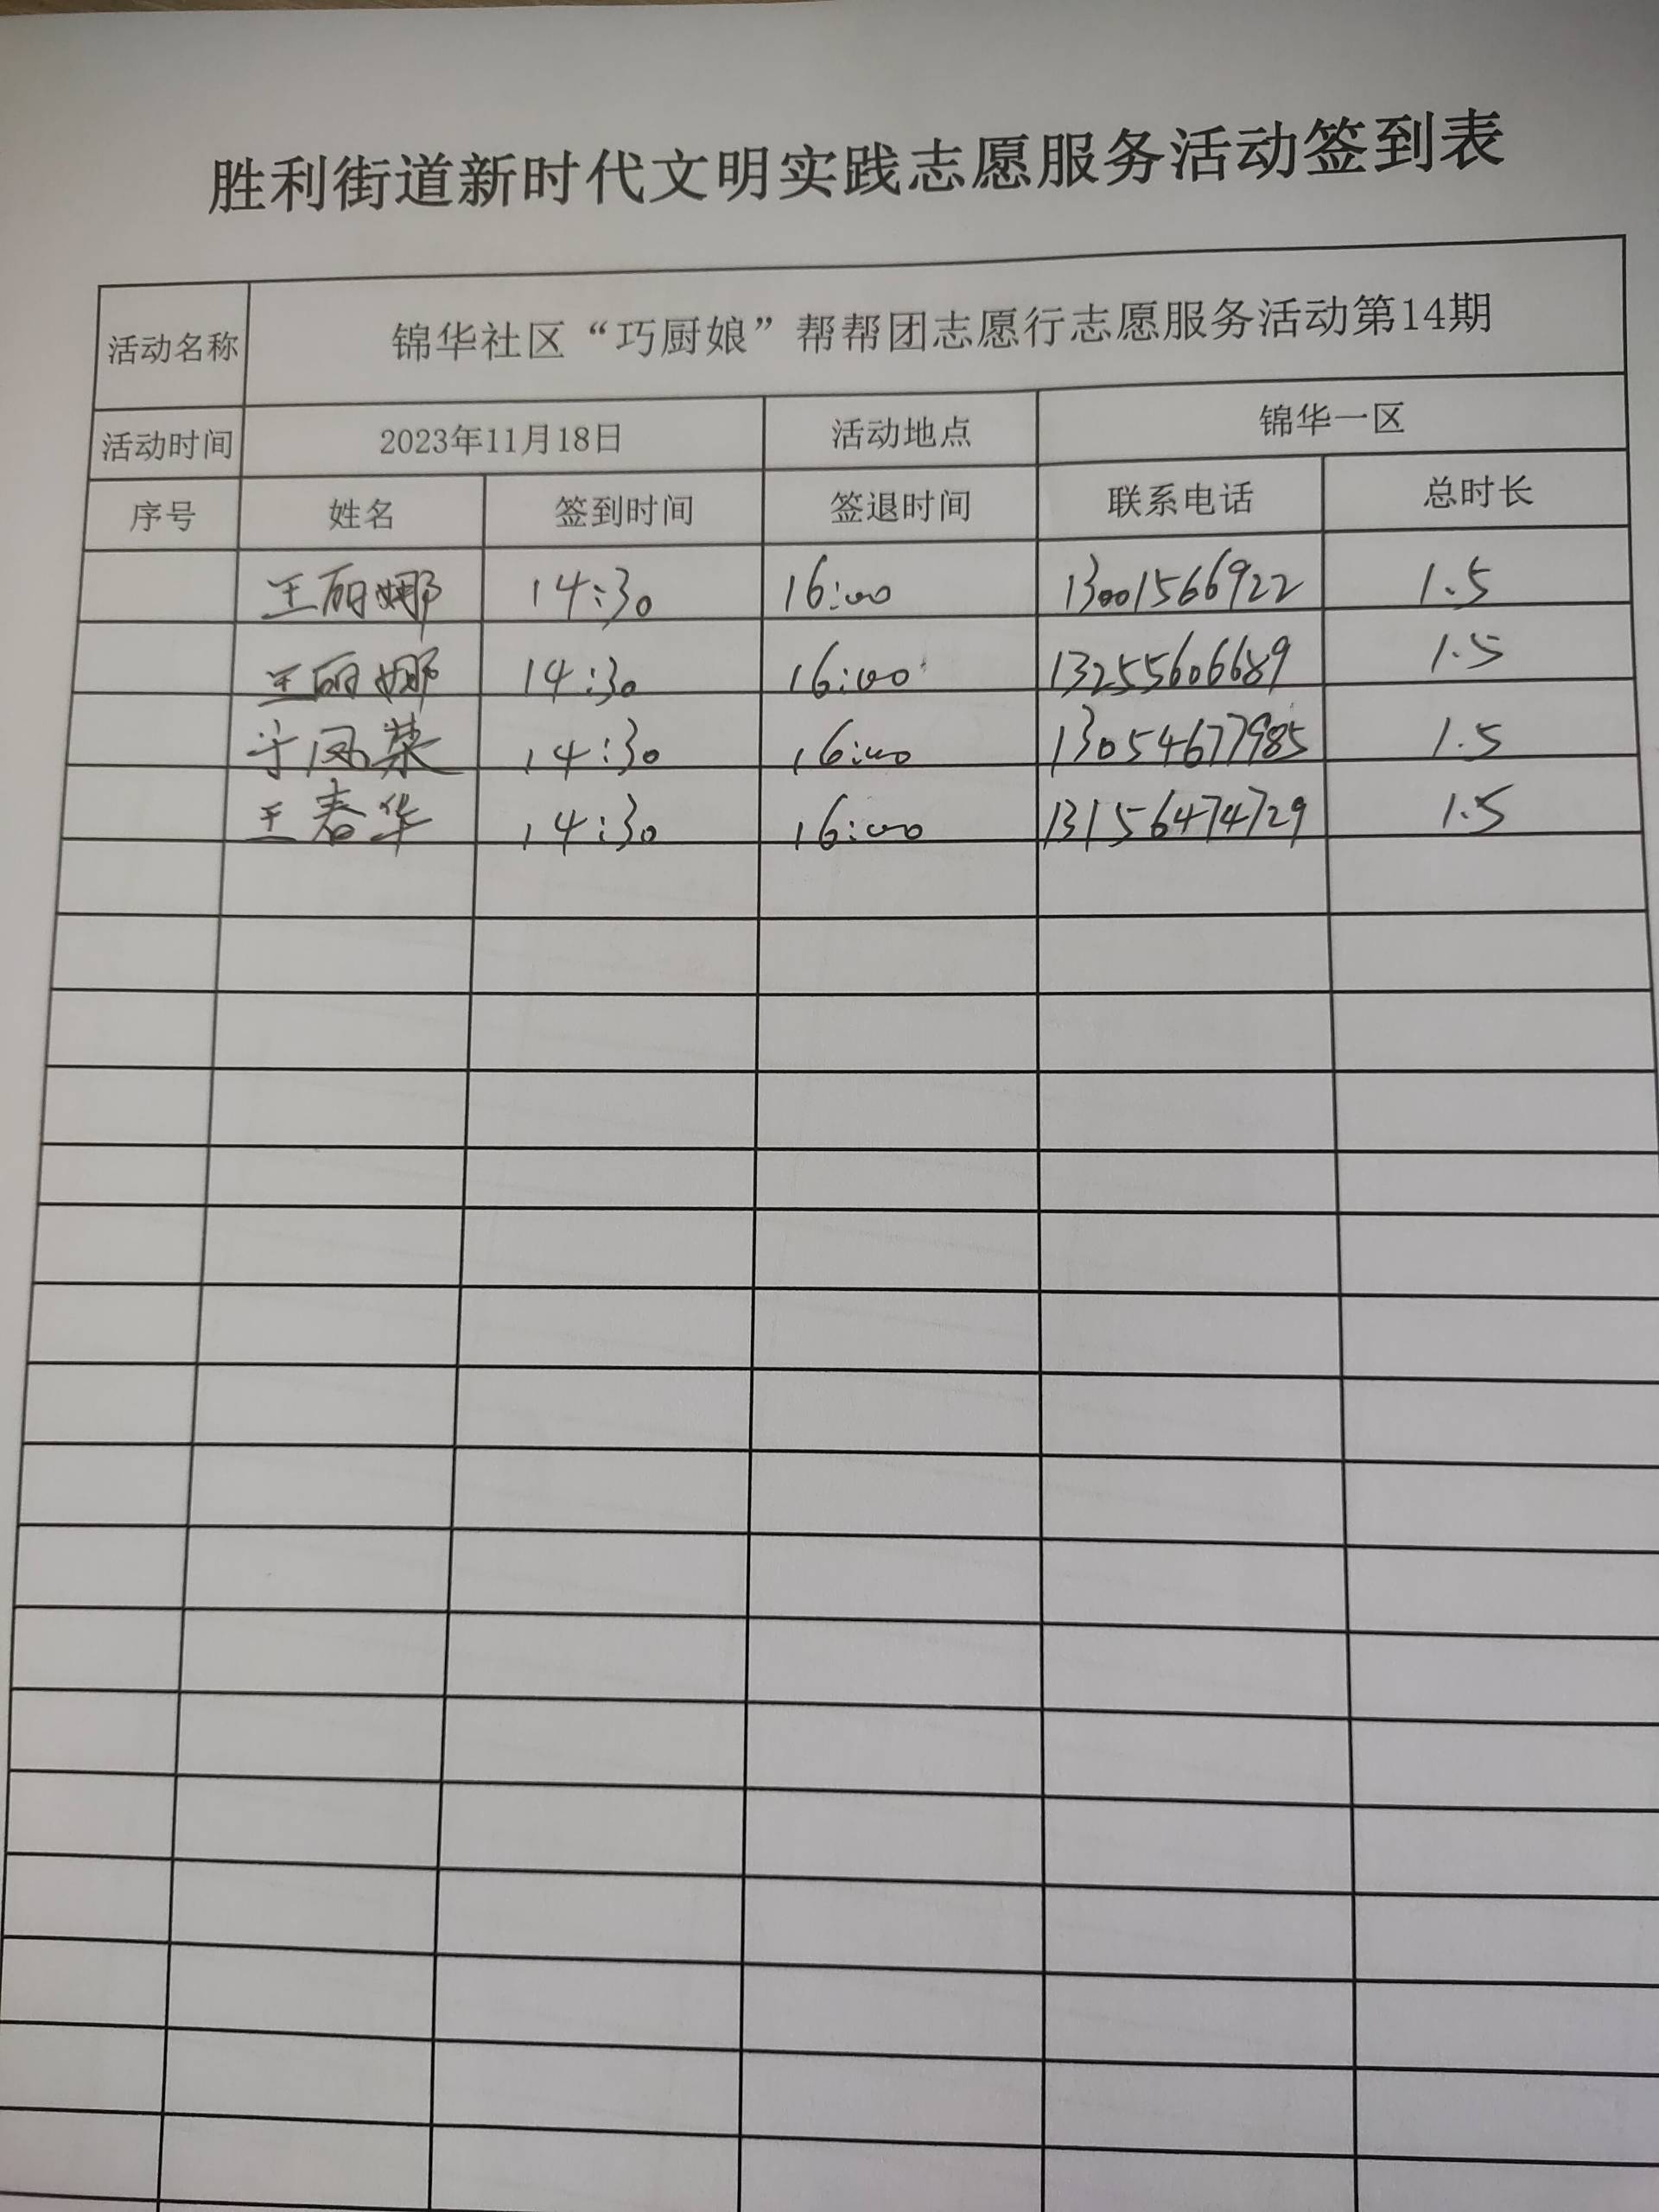 胜利街道新时代文明实践志愿服务活动签到表
活动名称 锦华社区“巧厨娘”帮帮团志愿行志愿服务活动第14期
活动时间 2023年11月18日 活动地点 锦华一区
序号 姓名 签到时间 签退时间 联系电话 总时长
王丽娜 14:30 16:00 13001566922 1.5
王丽娜 14:30 16:00 13255606689 1.5
于凤荣 14:30 16:00 13054677985 1.5
王春华 14:30 16:00 13156474729 1.5